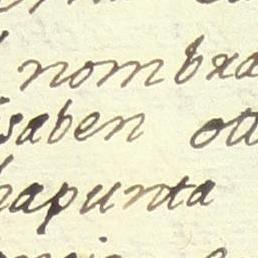 nombra
saben ott
hapunta